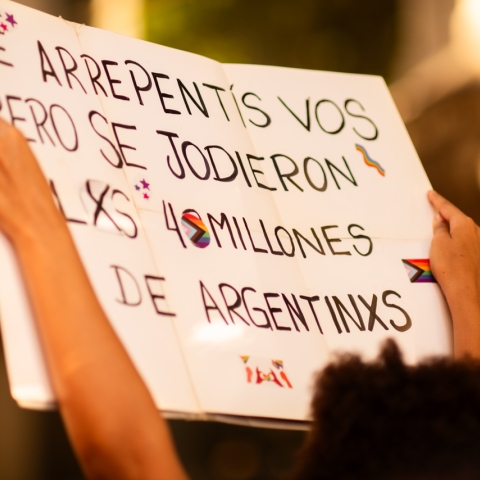 E ARREPENTÍS VOS
PERO SE JODIERON
LXS 40 MILLONES
DE ARGENTINXS